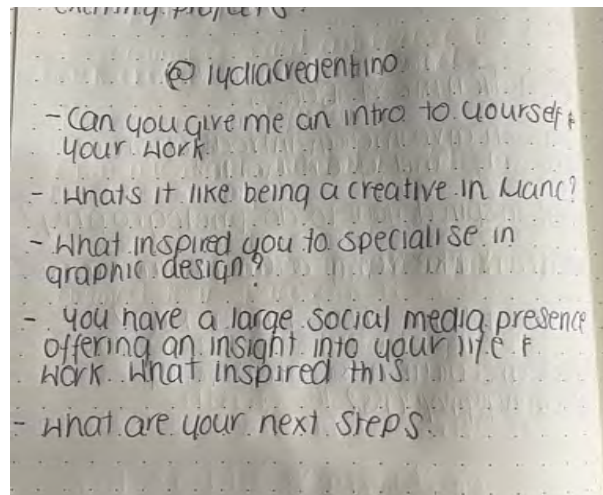 exciting projects.
@lydiacredentino
- Can you give me an intro to yourself +
your work
- Whats it like being a creative in Manc?
- What inspired you to specialise in
graphic design?
- You have a large social media presence
offering an insight into your life +
work. What inspired this.
- What are your next steps.